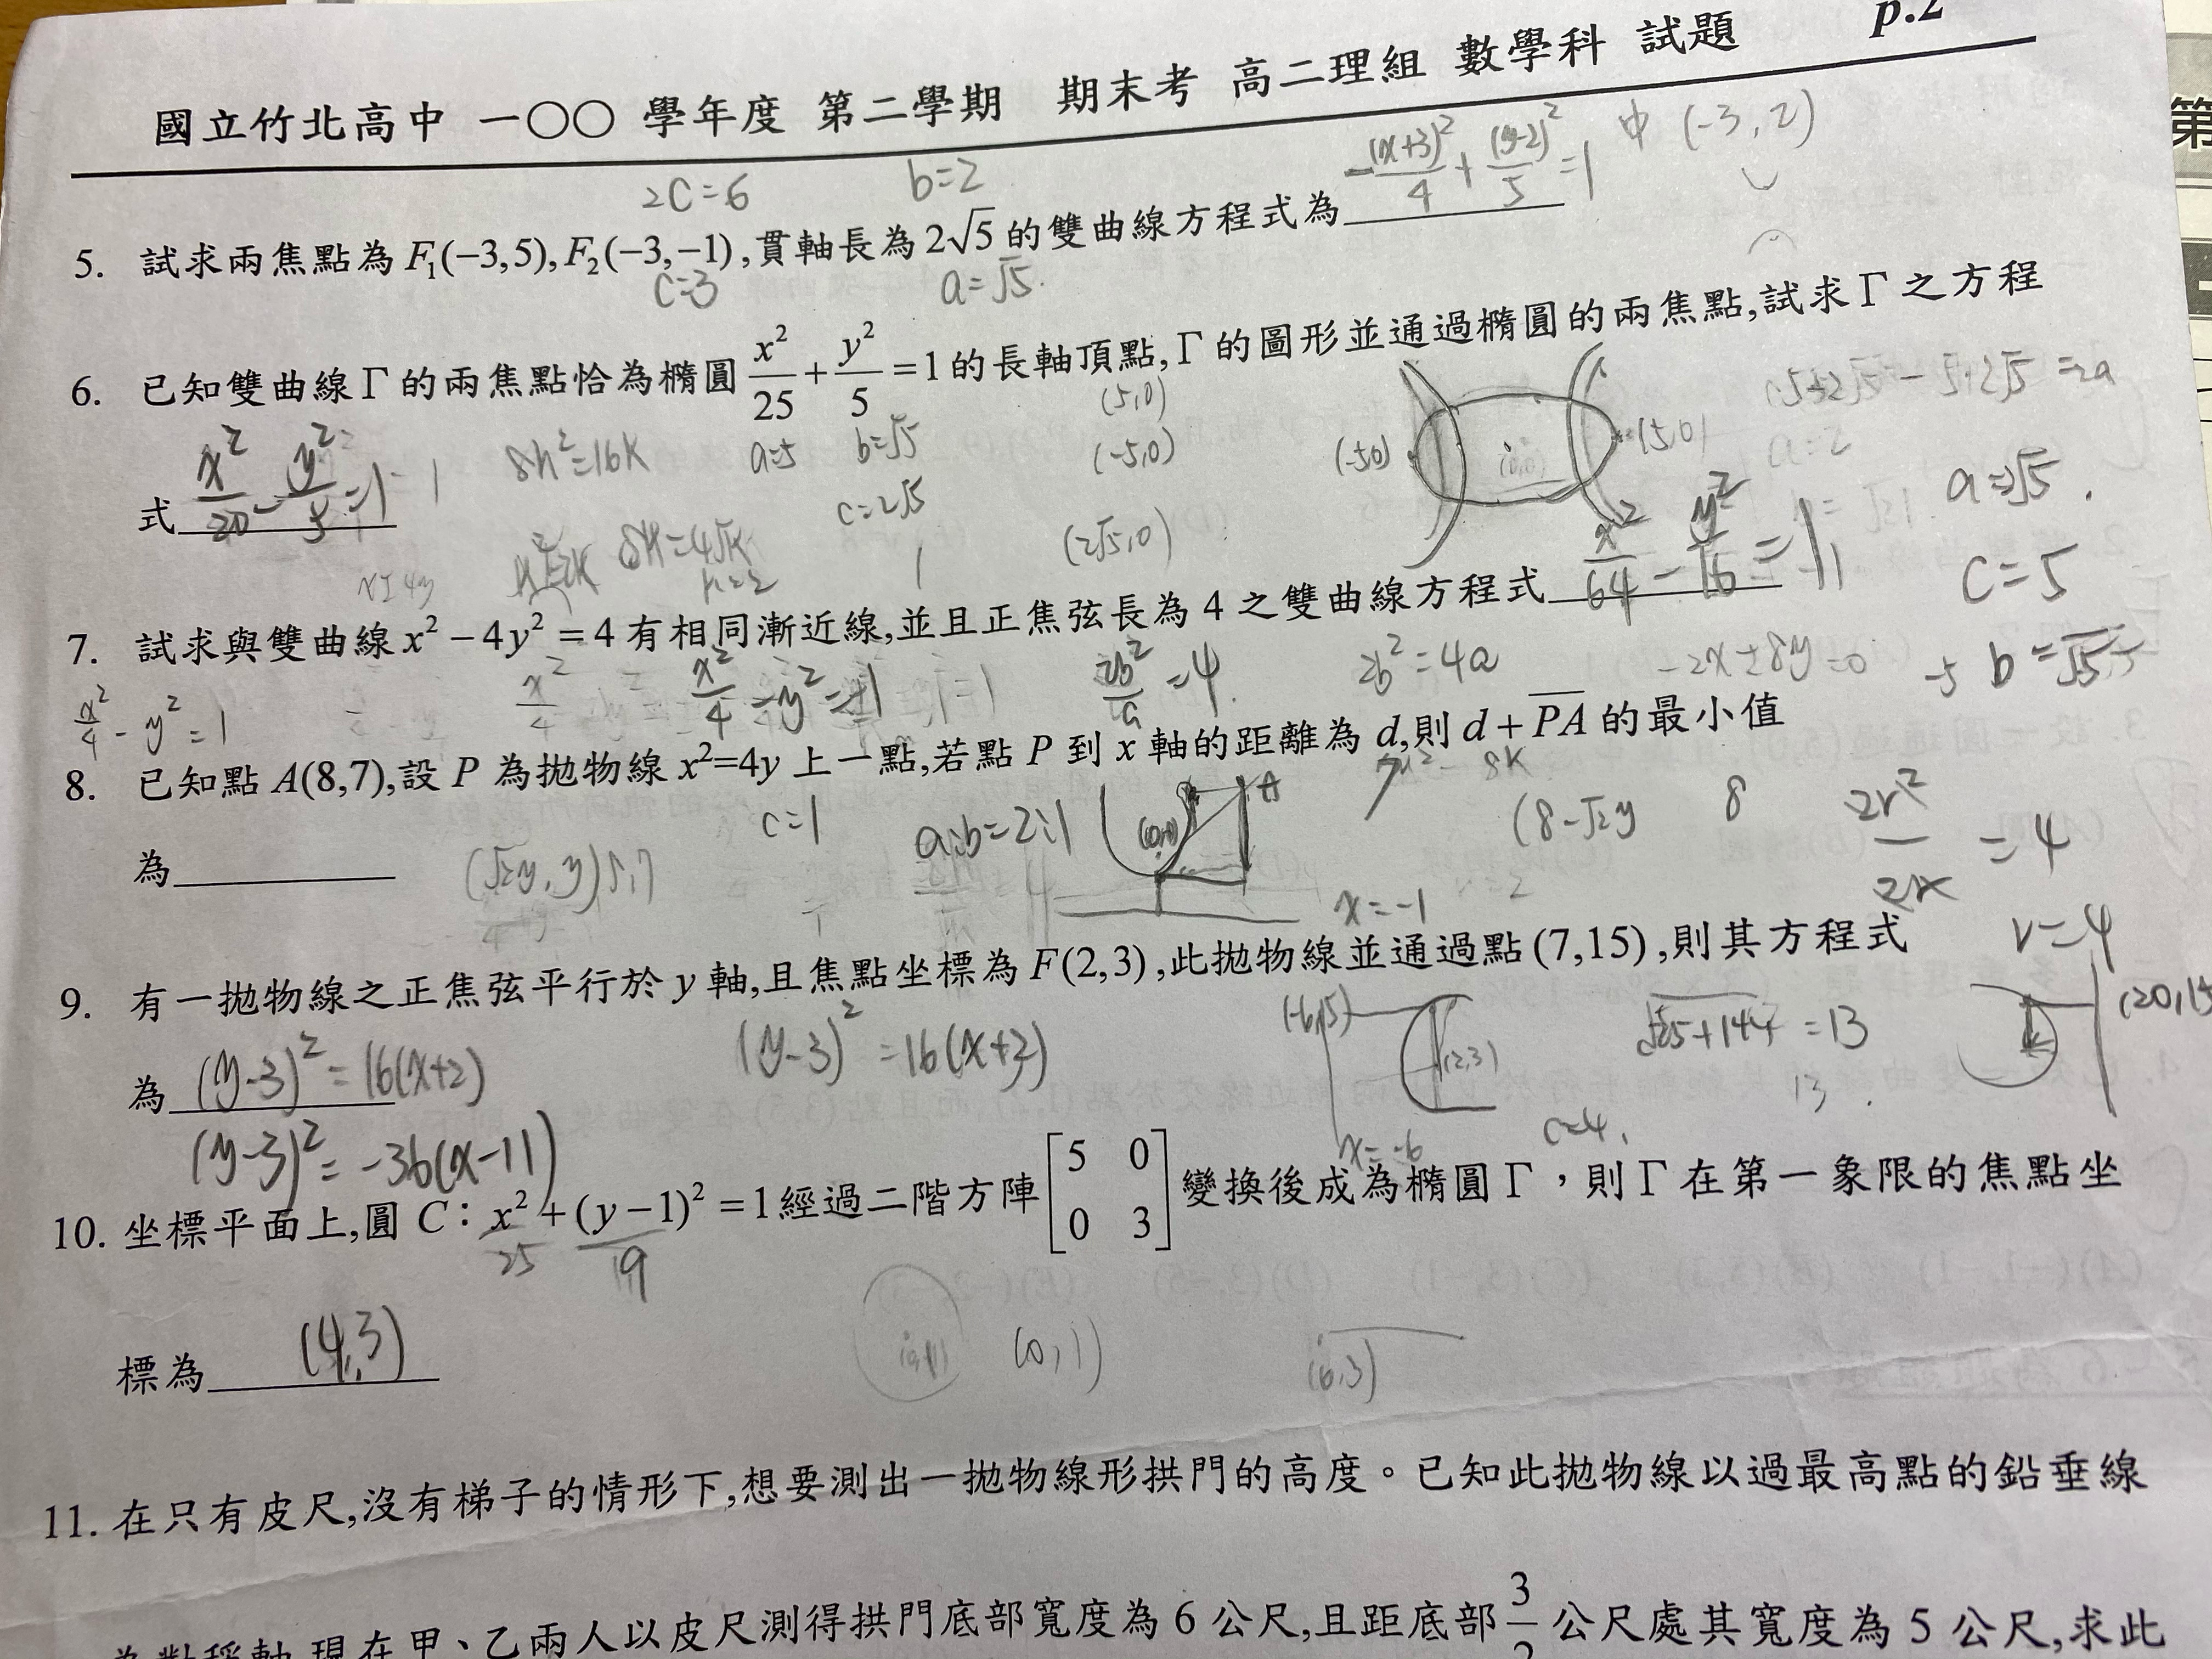 p.2
國立竹北高中 一〇〇 學年度 第二學期 期末考 高二理組 數學科 試題
2C=6 b=2 -(x+3)²/4 + (y-2)²/5 =1 中 (-3, 2)
5. 試求兩焦點為 F₁(−3,5), F₂(−3,−1), 貫軸長為 2√5 的雙曲線方程式為
C=3 a=√5.
6. 已知雙曲線 Γ 的兩焦點恰為橢圓 x²/25 + y²/5 = 1 的長軸頂點, Γ 的圖形並通過橢圓的兩焦點, 試求 Γ 之方程
(5,0)
式 x²/20 - y²/5 = 1 8h²=16k a=5 b=√5 (-5,0) (-5,0) (0,0) (5,0)
c=2√5 a=2√5
(2√5,0) C=5
7. 試求與雙曲線 x² − 4y² = 4 有相同漸近線, 並且正焦弦長為 4 之雙曲線方程式 x²/64 - y²/16 = 1
x²/4 - y² = 1 x²/4 - y² = 1 2b²/a =4 2b²=4a b=√5
8. 已知點 A(8,7), 設 P 為拋物線 x²=4y 上一點, 若點 P 到 x 軸的距離為 d, 則 d + PA 的最小值
c=1 a:b=2:1 (0,0) A 8 =4
為
x=-1
9. 有一拋物線之正焦弦平行於 y 軸, 且焦點坐標為 F(2,3), 此拋物線並通過點 (7,15), 則其方程式
為 (y-3)²=16(x+2) (y-3)²=16(x+2) (-6,15) (2,3) √25+144 =13
(y-3)²= -36(x-11) x=-6 c=4 13
10. 坐標平面上, 圓 C：x² + (y − 1)² = 1 經過二階方陣 [5 0; 0 3] 變換後成為橢圓 Γ，則 Γ 在第一象限的焦點坐
25 9
標為 (4,3) (0,1) (0,3)
11. 在只有皮尺, 沒有梯子的情形下, 想要測出一拋物線形拱門的高度。已知此拋物線以過最高點的鉛垂線
為對稱軸, 現在甲、乙兩人以皮尺測得拱門底部寬度為 6 公尺, 且距底部 3/2 公尺處其寬度為 5 公尺, 求此
第